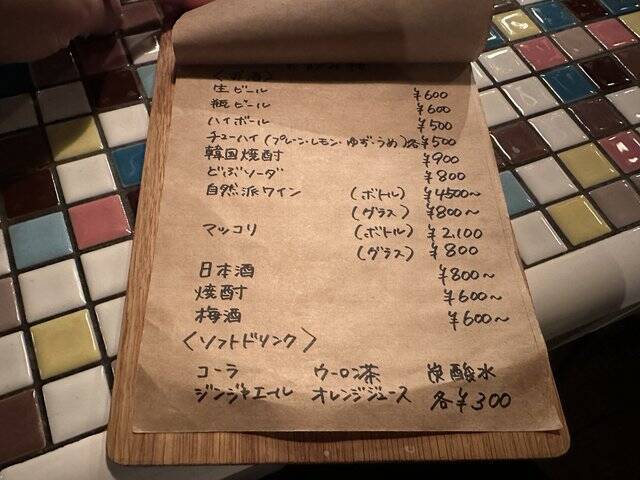 生ビール ¥600
瓶ビール ¥600
ハイボール ¥500
チューハイ(プレーン・レモン・ゆず・うめ)各¥500
韓国焼酎 ¥900
どぶソーダ ¥800
自然派ワイン (ボトル) ¥4500~
(グラス) ¥800~
マッコリ (ボトル) ¥2,100
(グラス) ¥800
日本酒 ¥800~
焼酎 ¥600~
梅酒 ¥600~
〈ソフトドリンク〉
コーラ ウーロン茶 炭酸水
ジンジャエール オレンジジュース 各¥300